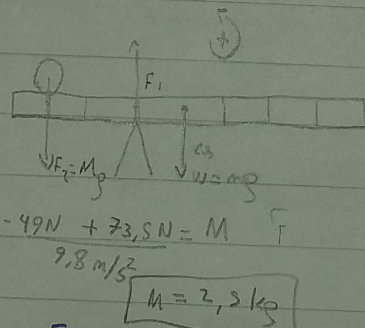 +
F₁
F₂=Mg
cg
w=mg
-49N + 73,5N = M
9,8 m/s²
M = 2,5 kg